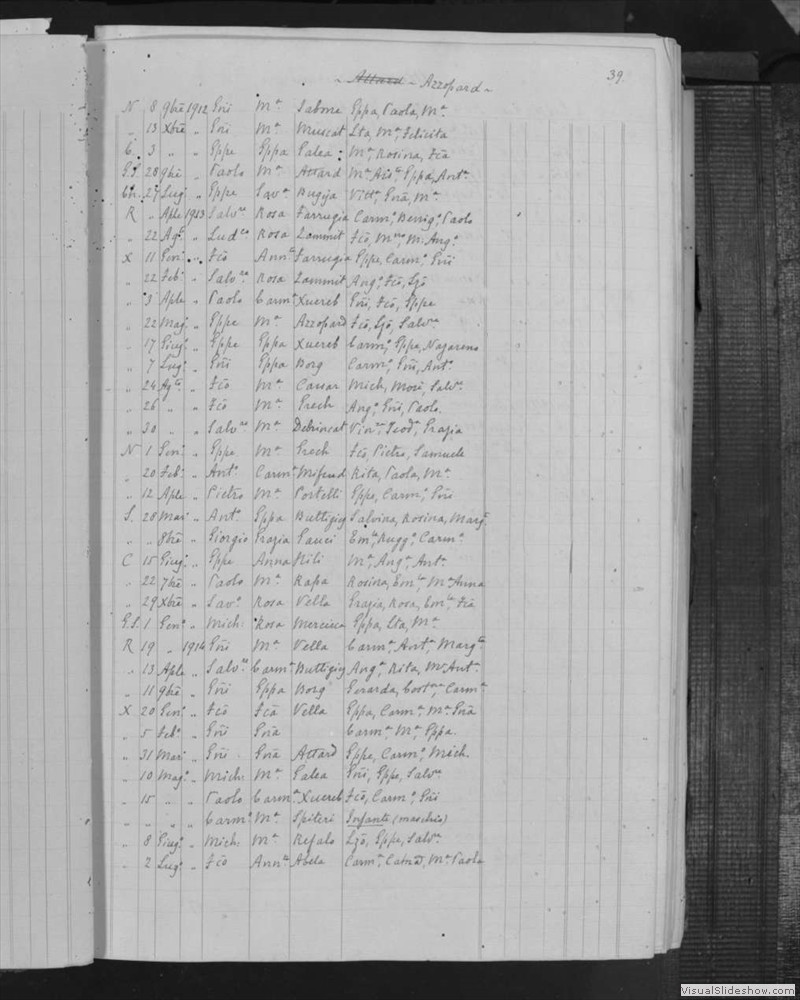 ~ Attard ~ Azzopard ~
39.
N 8 9bre 1912 Gni Ma Sabone Eppa, Paola, Ma
" 13 Xbre " Gni Ma Muscat Lta, Ma Felicita
C. 3 " " Eppe Eppa Galea Ma, Rosina, Fca
G.S. 28 9bre " Paolo Ma Attard Ma Eppa, Anta
27 Lug: " Eppe Sava Bugeja Vitta, Gna, Ma
R " Aple 1913 Salvre Rosa Farrugia Carmo, Benigo, Paolo
" 22 Ago " Ludco Rosa Zammit Fco, Ango
X 11 Gen: " Fco Annta Farrugia Eppe, Carmo, Gni
" 22 Feb: " Salvre Rosa Zammit Ango, Fco, Ljo
" 3 Aple " Paolo Carma Xuereb Gni, Fco, Eppe
" 22 Mag: " Eppe Ma Azzopard Fco, Ljo, Salvre
" 17 Giug: " Eppe Eppa Xuereb Carmo, Eppe, Nazareno
" 7 Lug: " Gni Eppa Borg Carmo, Gni, Anto
" 24 Agto " Fco Ma Caesar Mich, Mose, Salvre
" 26 " " Fco Ma Grech Ango, Gni, Paolo.
" 30 " " Salvre Ma Debrincat Grazia
N 1 Gen: " Eppe Ma Grech Fco, Pietro, Samuele
" 20 Feb: " Anto Carma Mifsud Rita, Paola, Ma
" 12 Aple " Pietro Ma Portelli Eppe, Carmo, Gni
S. 28 Mar: " Anto Eppa Buttigieg Salvina, Rosina, Margta
" " 8bre " Giorgio Grazia Gauci Emle, Ruggo, Carmo
C 15 Giug: " Eppe Anna Ma, Anga, Anta
" 22 7bre " Paolo Ma Rapa Rosina, Emla, Ma Anna
" 29 Xbre " Savo Rosa Vella Grazia, Rosa, Emla, Fca
G.S. 1 Geno " Mich: Rosa Mercieca Eppa, Lta, Ma
R 19 " 1914 Gni Ma Vella Carma, Anta, Margta
" 13 Aple " Salvre Carma Buttigieg Anga, Rita, Ma Anta
" 11 9bre " Gni Eppa Borg Gerarda, Carma
X 20 Gen: " Fco Fca Vella Eppa, Carma, Ma Gna
" 5 Febo " Gni Gna Carma, Ma, Eppa.
" 31 Mar: " Gni Gna Attard Eppe, Carmo, Mich.
" 10 Mag: " Mich: Ma Galea Gni, Eppe, Salvre
" 15 " " Paolo Carma Xuereb Fco, Carmo, Gni
" " " " Carmo Ma Spiteri Infante (maschio)
" 8 Giugo " Mich: Ma Refalo Ljo, Eppe, Salvre
" 2 Lugo " Fco Annta Abela Carma, Ma Paola
VisualSlideshow.com